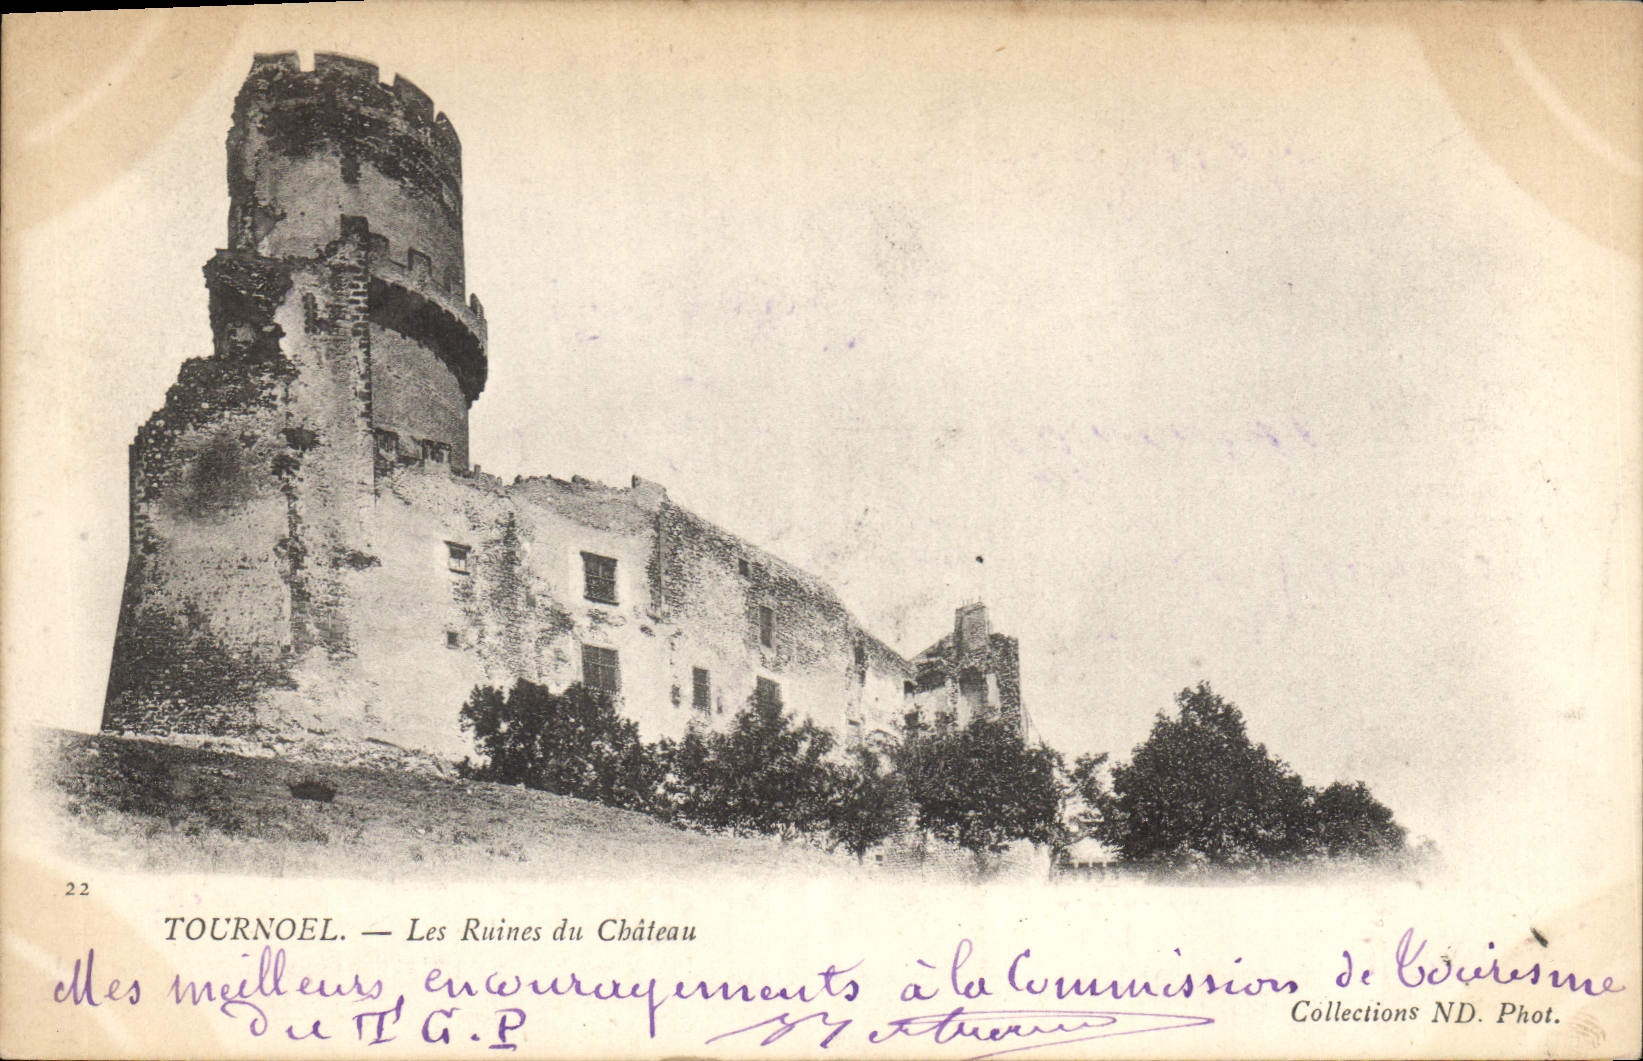 22
TOURNOEL. — Les Ruines du Château
Mes meilleurs encouragements à la Commission de Tourisme
Collections ND. Phot.
du T G. P